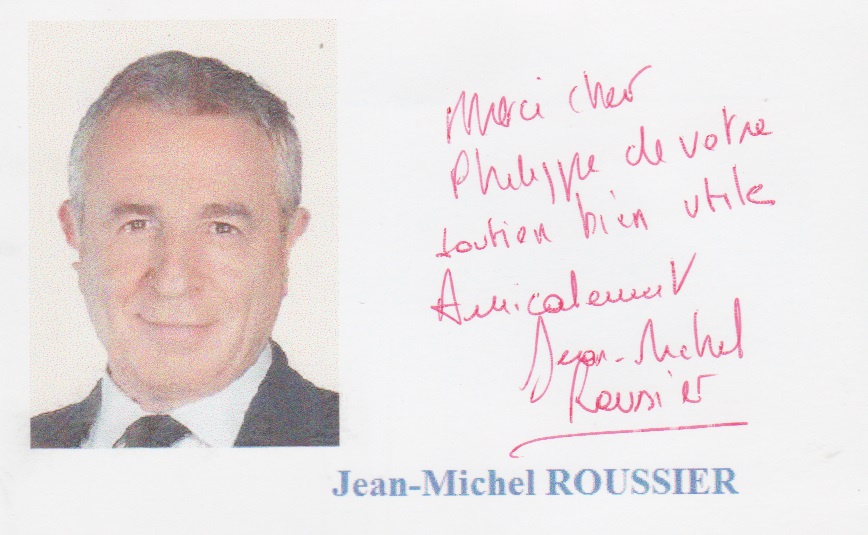 Merci cher
Philippe de votre
soutien bien utile
Amicalement
Jean-Michel
Roussier
Jean-Michel ROUSSIER